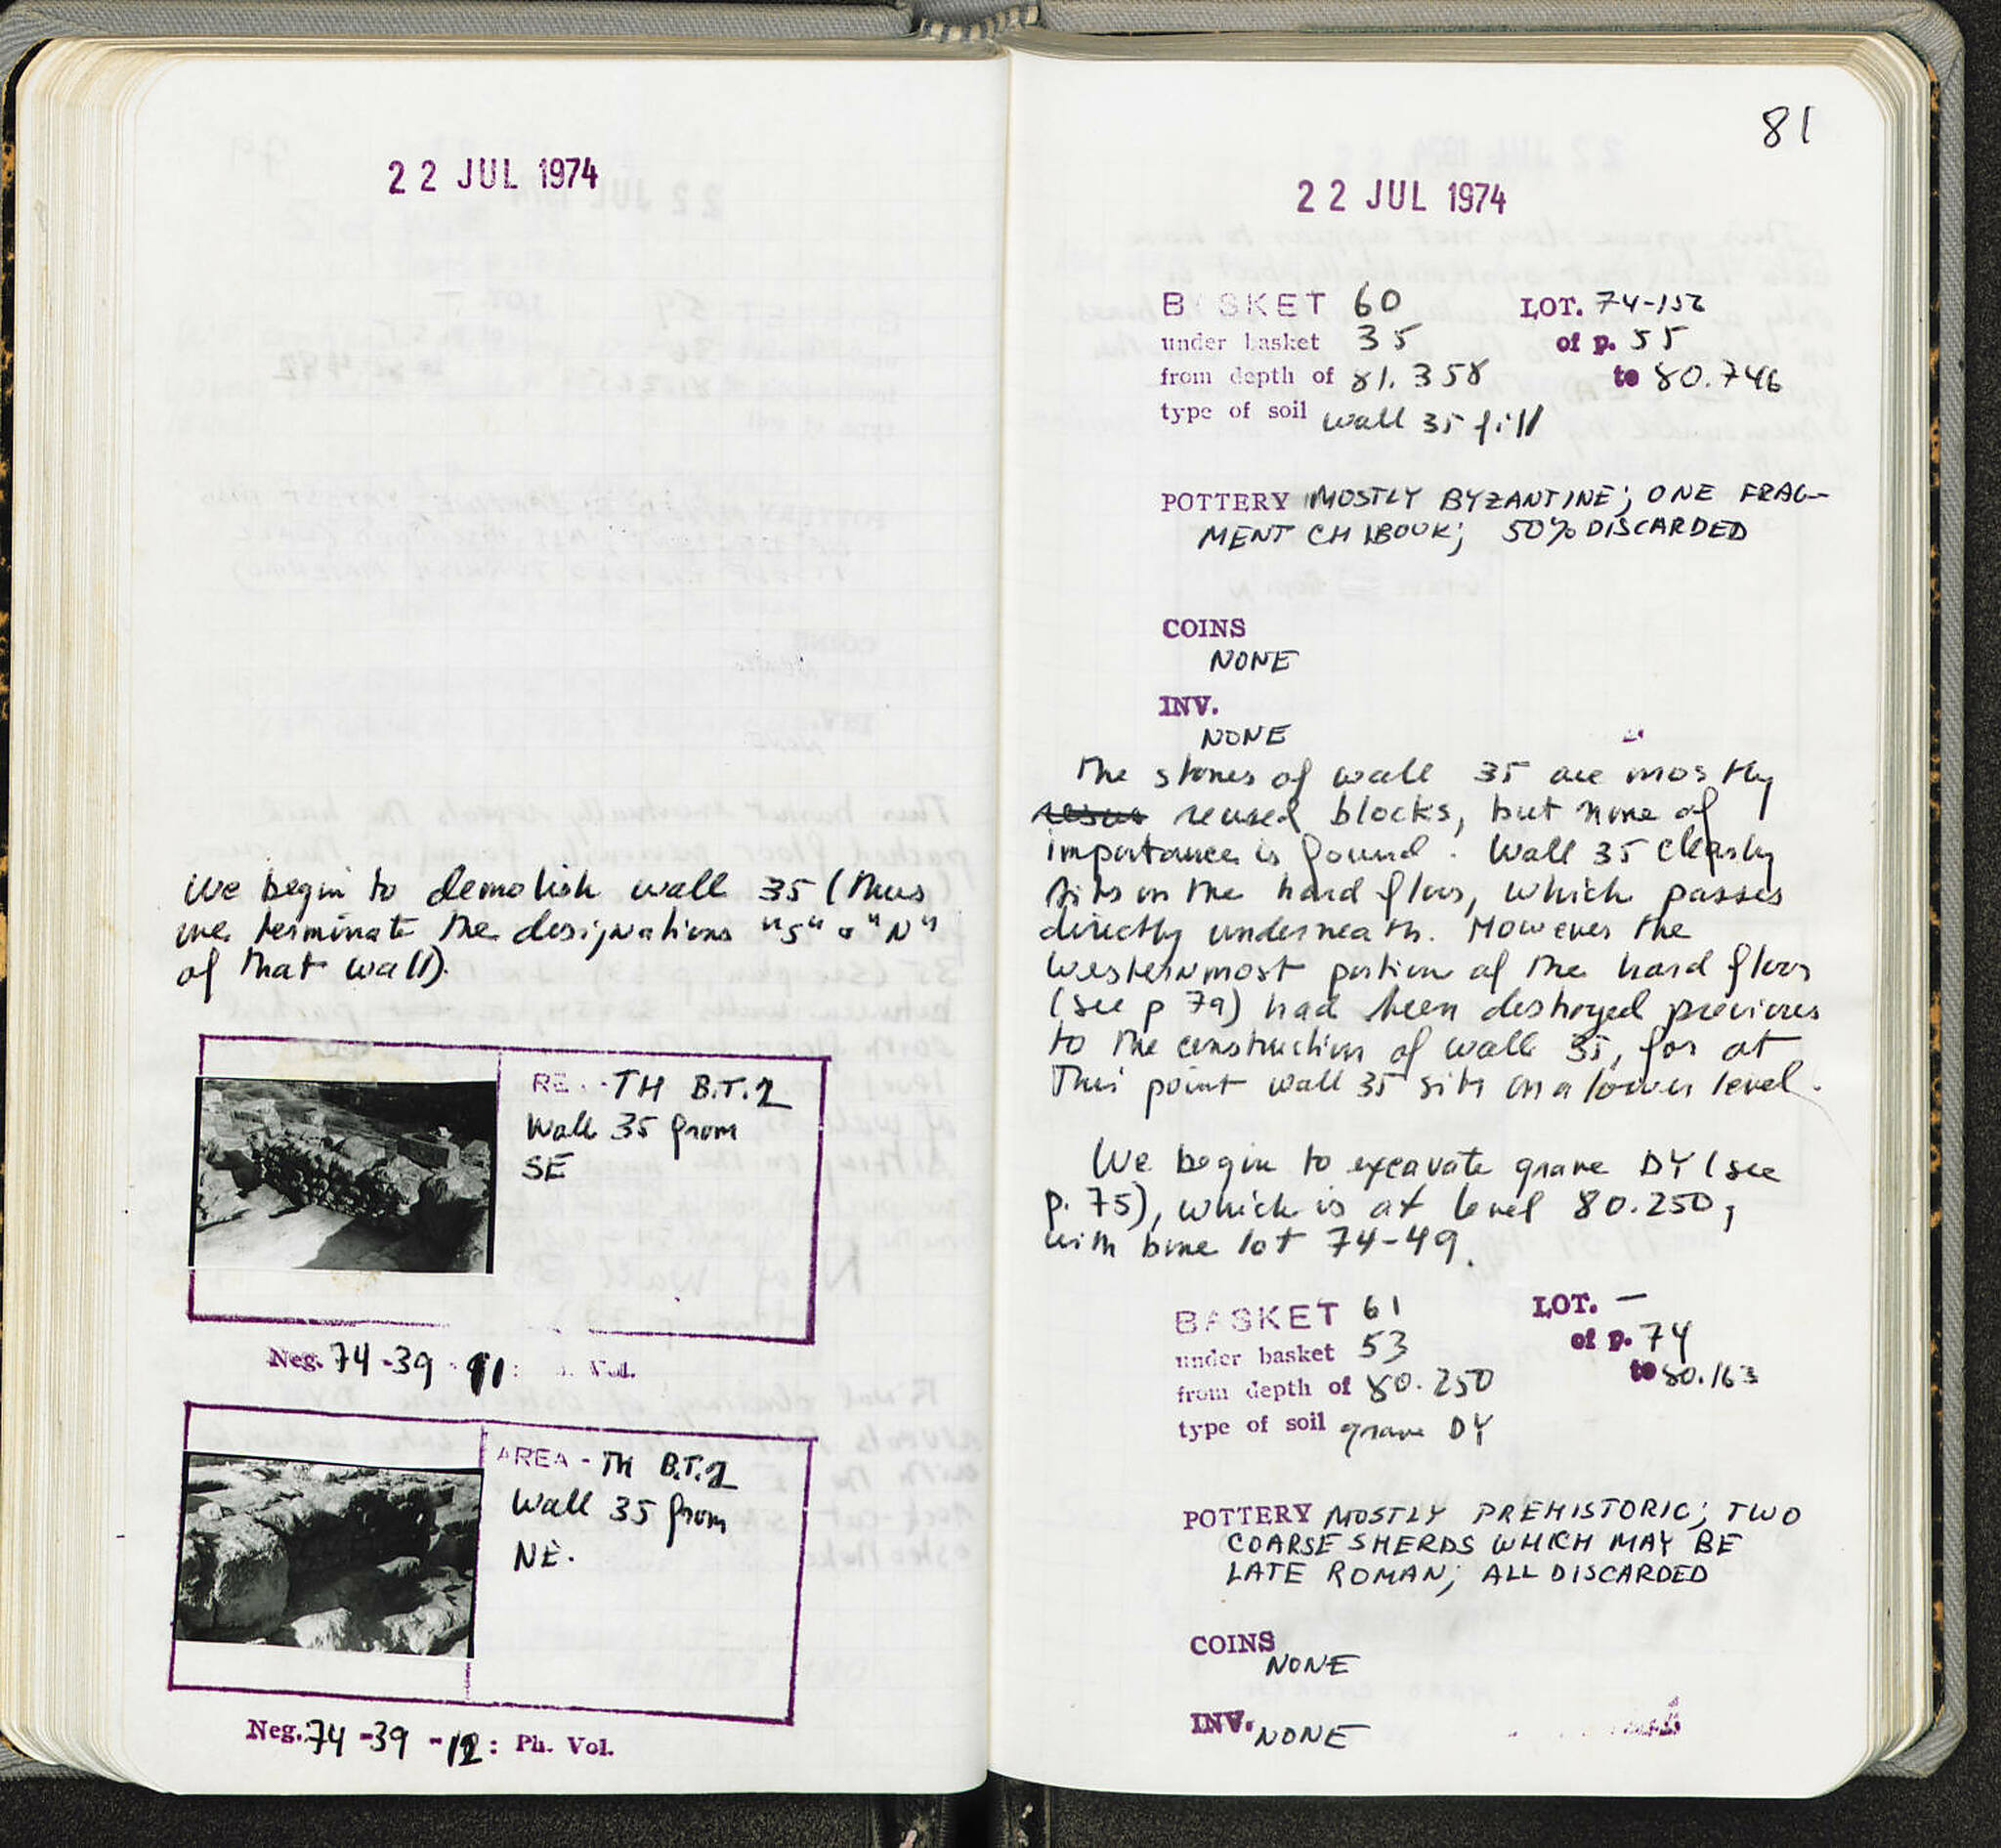 22 JUL 1974
We begin to demolish wall 35 (thus
we terminate the designations "S" + "N"
of that wall).
RE - TH B.T.2
Wall 35 from
SE
Neg. 74-39-11: Vol.
AREA - TH B.T.2
Wall 35 from
NE.
Neg. 74-39-12: Ph. Vol.
81
22 JUL 1974
BASKET 60 LOT. 74-
under basket 35 of p. 55
from depth of 81.358 to 80.746
type of soil wall 35 fill
POTTERY MOSTLY BYZANTINE; ONE FRAG-
MENT CHIBOUK; 50% DISCARDED
COINS
NONE
INV.
NONE
The stones of wall 35 are mostly
reused blocks, but none of
importance is found. Wall 35 clearly
sits on the hard floor, which passes
directly underneath. However the
westernmost portion of the hard floor
(see p 79) had been destroyed previous
to the construction of wall 35, for at
this point wall 35 sits on a lower level.
We begin to excavate grave DY (see
p. 75), which is at level 80.250,
with bone lot 74-49.
BASKET 61 LOT. —
under basket 53 of p. 74
from depth of 80.250 to 80.163
type of soil grave DY
POTTERY MOSTLY PREHISTORIC; TWO
COARSE SHERDS WHICH MAY BE
LATE ROMAN; ALL DISCARDED
COINS
NONE
INV. NONE